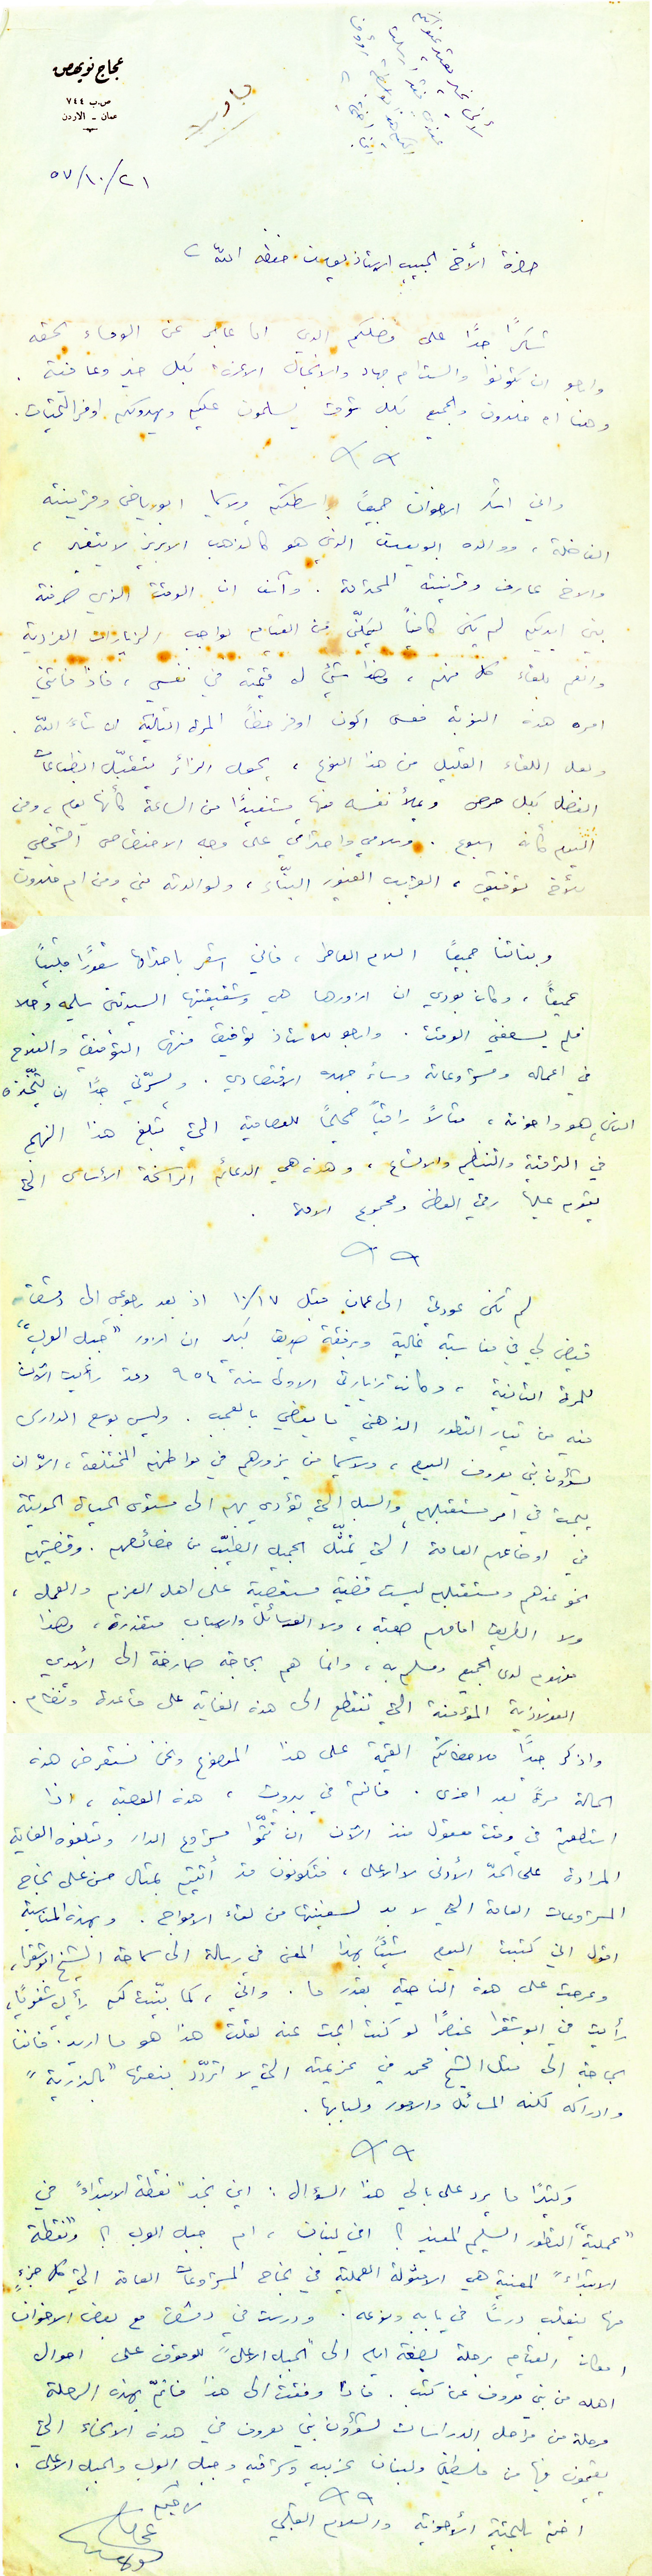 عجاج نويهض
ص.ب ٧٤٤
عمان - الاردن
٥٧/١٠/٢١
حضرة الأخ الحبيب الاستاذ يوسف حفظه الله
شكراً جداً على فضلكم الذي انا عاجز عن الوفاء بحقه
وارجو ان تكونوا والست ام جهاد والانجال الاعزة، بكل خير وعافية.
وهنا ام خلدون والجميع بكل شوق يسلمون عليكم ويهدونكم اوفر التحيات.
واني اشكر الاخوان جميعاً بواسطتكم ولاسيما ابو رياض وقرينته
الفاضلة، ووالده ابو يوسف الذي هو كالذهب الابريز لا يتغير،
والاخ عارف وقرينته المحترمة. وآسف ان الوقت الذي صرفته
بين ايديكم لم يكن كافياً ليمكنّي من القيام بواجب الزيارات الفردية
وانعم بلقاء كل منهم، وهذا شيء له قيمته في نفسي، فاذا فاتني
امره هذه النوبة فعسى اكون اوفر حظاً المرة التالية ان شاء الله.
ولعل اللقاء القليل من هذا النوع، يجعل الزائر يتقبّل انطباعات
الفضل بكل حرص ويملأ نفسه منها مستفيداً من الساعة كأنها يوم، ومن
اليوم كأنه اسبوع. وسلامي واحترامي على وجه الاختصاص الشخصي
للأخ توفيق، القريب الغيور البنّاء، ولوالدته مني ومن ام خلدون
وبناتنا جميعاً السلام العاطر، فاني اشعر باحترامها شعوراً قلبياً
عميقاً، وكان بودي ان ازورها هي وشقيقتها السيدتين سليمه وحلا
فلم يسعفني الوقت. وارجو للاستاذ توفيق منتهى التوفيق والفلاح
في اعماله ومشروعاته وسائر جهده الاقتصادي. ويسرّني جداً ان يتّخذه
الناس هو واخوته، مثالاً راقياً صحيحاً للعصامية التي تبلغ هذا النهج
في الترقية والتنظيم والاتساع، وهذه هي الدعائم الراسخة الأساس التي
يقوم عليها رقي الوطن ومجموع الامة.
لم تكن عودتي الى عمان قبل ١٠/١٧ اذ بعد رجوعي الى دمشق
قيض لي في مناسبة غالية وبرفقة صديق كبير ان ازور "جبل العرب"
للمرة الثانية، وكانت زيارتي الاولى سنة ٩٥٤ وقد رأيت الآن
فيه من تيار التطور الذهني ما يقضي بالعجب. وليس بوسع الدارس
لشؤون بني معروف اليوم، ولاسيما من يزورهم في مواطنهم المختلفة، الاّ ان
يبحث في امر مستقبلهم والسبل التي تؤدي بهم الى مستوى الحياة الحديثة
في اوضاعهم العامة التي تمثّل الجميل الطيّب من خصائصهم. وقضيتهم
نحو غدهم ومستقبلهم ليست قضية مستعصية على اهل العزم والعمل،
ولا الطريق امامهم صعبة، ولا الوسائل والاسباب متعذرة، وهذا
مفهوم لدى الجميع ومسلم به، وانما هم بحاجة صارخة الى الايدي
الفولاذية المؤمنة التي تنقطع الى هذه الغاية على قاعدة ونظام.
واذكر جيداً ملاحظاتكم القيمة على هذا الموضوع ونحن نستعرض هذه
الحالة مرة بعد اخرى. فانتم في بيروت، هذه العصبة، اذا
استطعتم في وقت معقول منذ الآن ان تتمّوا مشروع الدار وتبلغوه الغاية
المرادة على الحدّ الأدنى لا الاعلى، فتكونون قد أتيتم بمثال حسن على نجاح
المشروعات العامة التي لا بد لسفينتها من لقاء الامواج. وبهذه المناسبة
اقول اني كتبت اليوم شيئاً بهذا المعنى في رسالة الى سماحة الشيخ ابو شقرا،
وعرجت على هذه الناحية بقدر ما. واني، كما بيّنت لكم رأيي شفوياً،
رأيت في ابو شقرا عنصراً لو كنت ابحث عنه لقلت هذا هو ما اريد. فاننا
بحاجة الى مثل الشيخ محمد في عزيمته التي لا اتردّد بنعتها "بالذرّية"
وادراكه لكنه المسائل والامور ولبابها.
وكثيراً ما يرد على بالي هذا السؤال: اين نجد "نقطة الابتداء" في
"عملية" التطور السليم المفيد؟ افي لبنان، ام جبل العرب؟ و"نقطة
الابتداء" المعنية هي الامثولة العملية في نجاح المشروعات العامة التي كل جزء
منها ينقلب درساً في بابه ونوعه. ودرست في دمشق مع بعض الاخوان
امكان القيام برحلة بضعة ايام الى "الجبل الاعلى" للوقوف على احوال
اهله من بني معروف عن كثب. فاذا وفقت الى هذا فاتمّ بهذه الرحلة
مرحلة من مراحل الدراسات لشؤون بني معروف في هذه الانحاء التي
يقيمون فيها من فلسطين ولبنان غربيه وشرقيه وجبل العرب والجبل الاعلى.
اختم بالتحية الأخوية والسلام القلبي
لاخيكم
عجاج نويهض